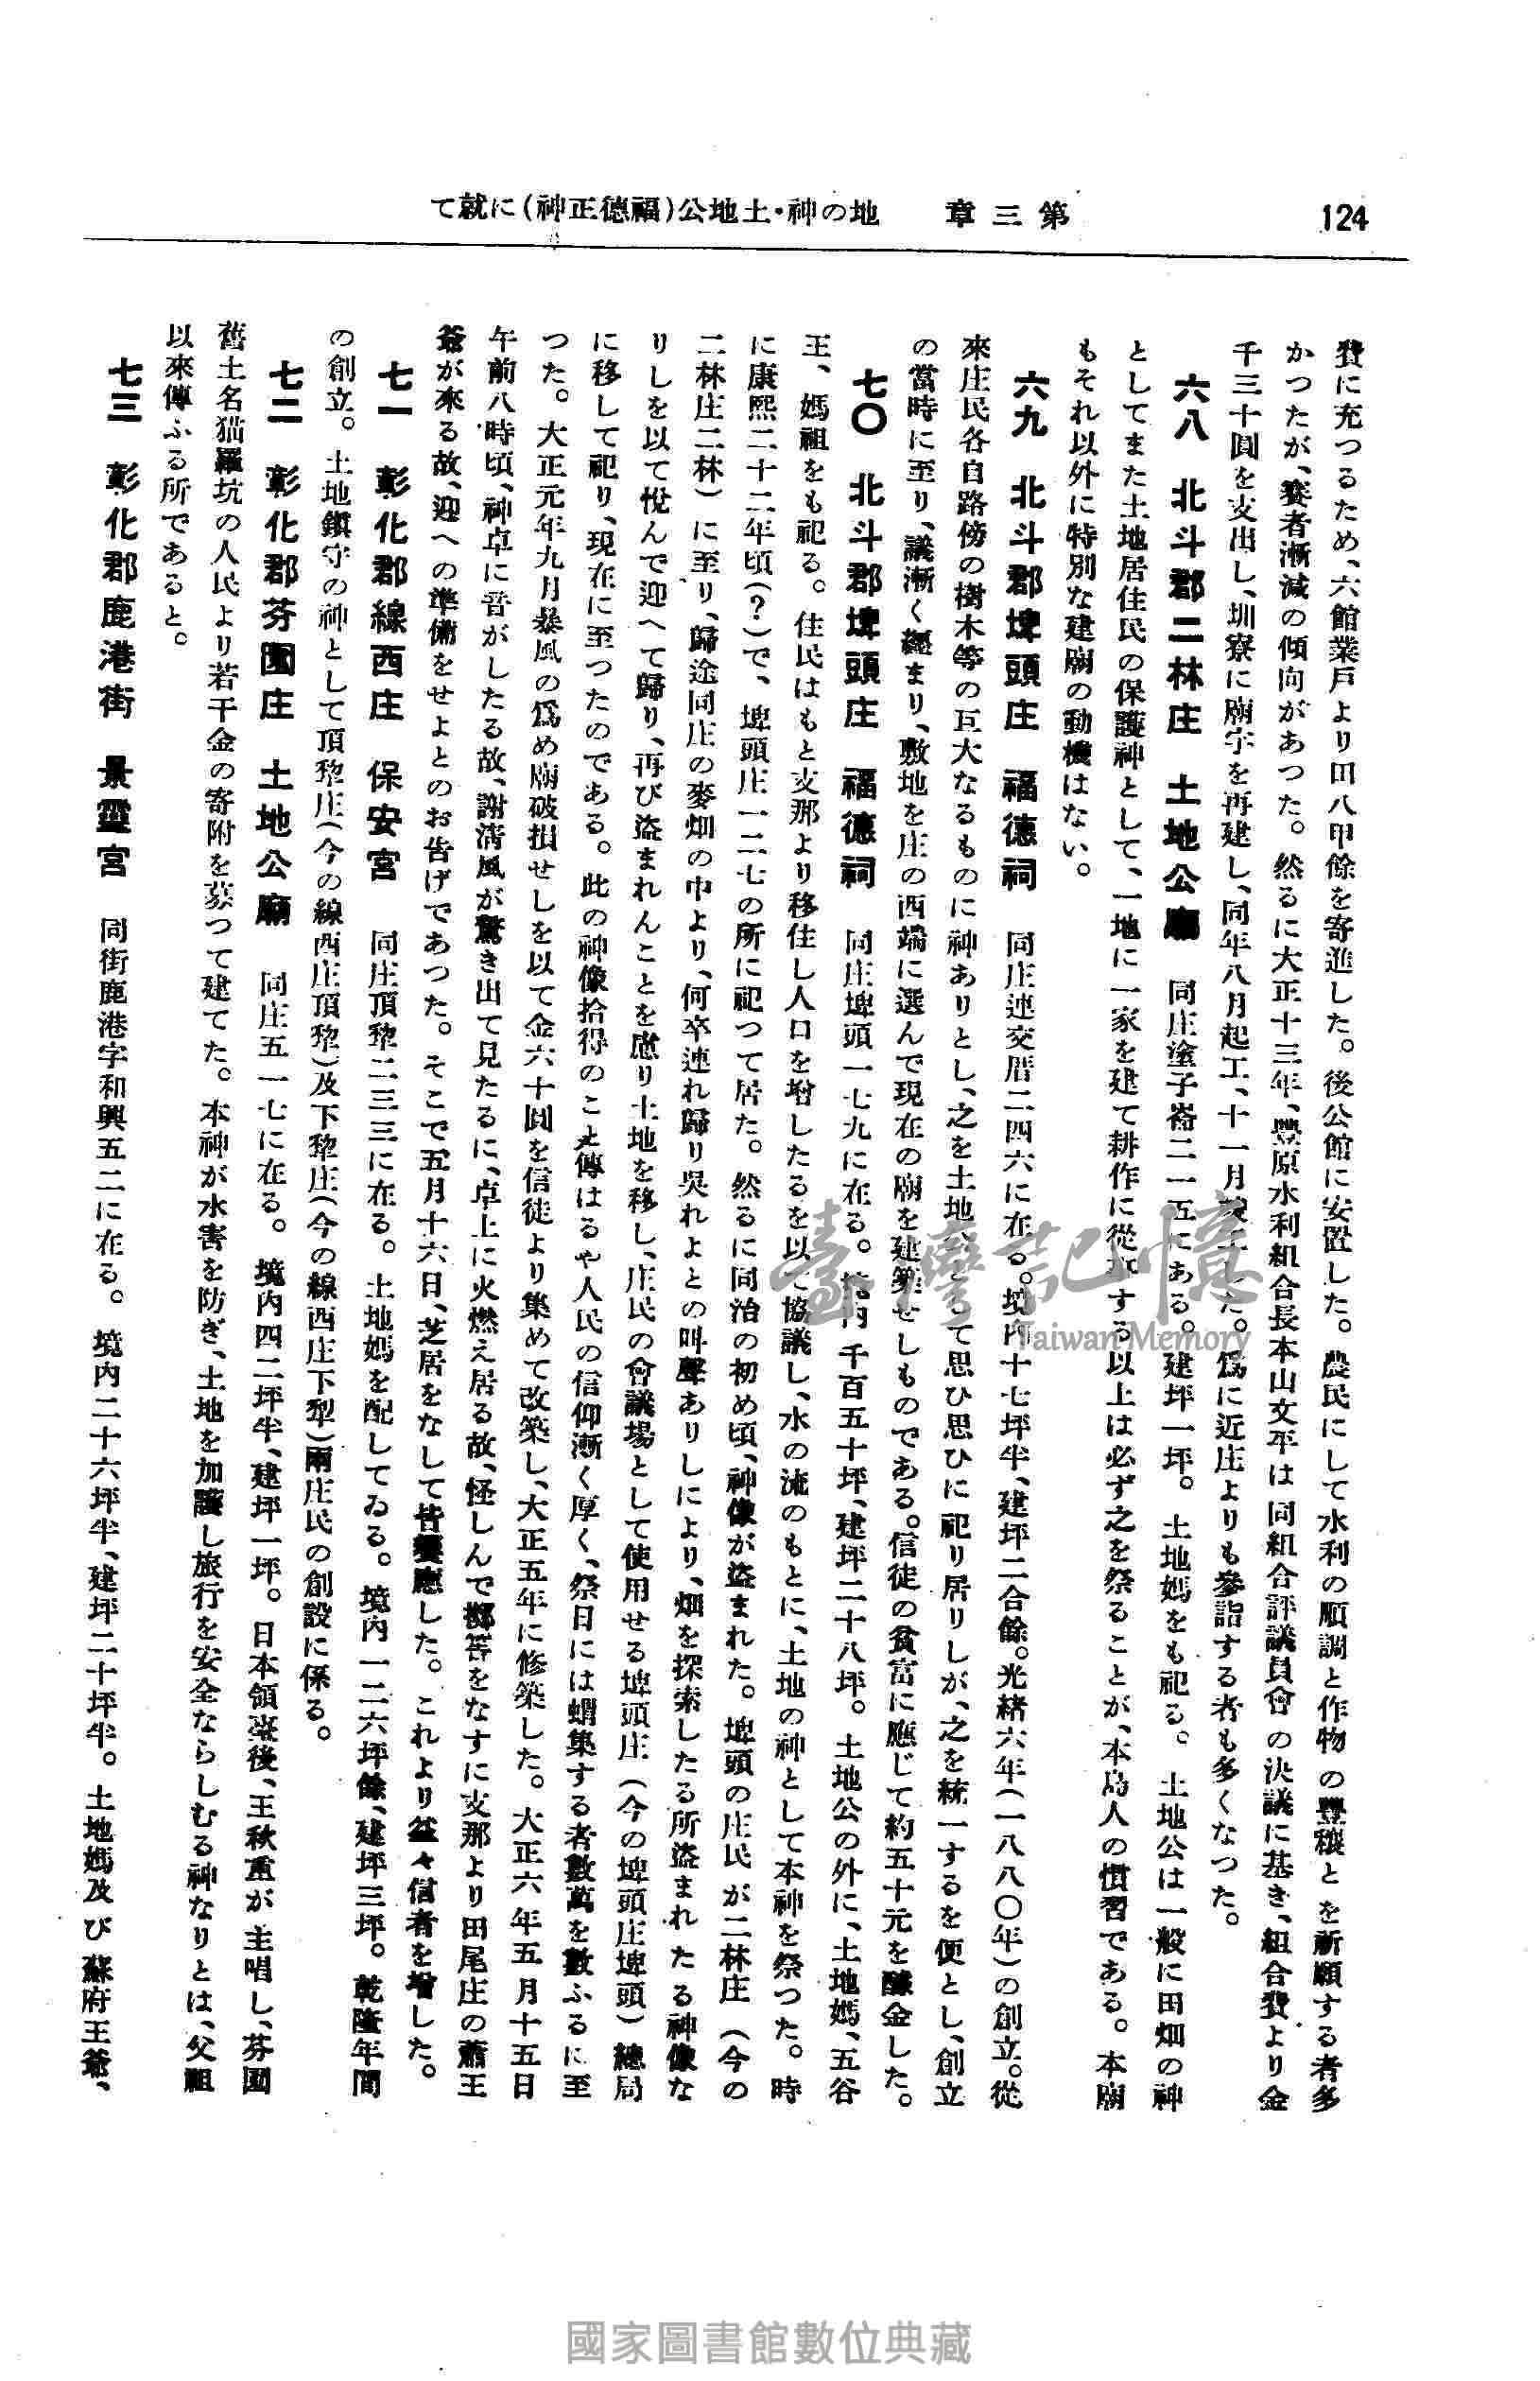 124
第三章 地の神・土地公(福德正神)に就て
費に充つるため、六館業戶より田八甲餘を寄進した。後公館に安置した。農民にして水利の順調と作物の豐穰とを祈願する者多
かつたが、賽者漸減の傾向があつた。然るに大正十三年、豐原水利組合長本山文平は同組合評議員會の決議に基き、組合費より金
千三十圓を支出し、圳寮に廟宇を再建し、同年八月起工、十一月竣工した。爲に近庄よりも參詣する者も多くなつた。
六八 北斗郡二林庄 土地公廟 同庄塗子崙二一五にある。建坪一坪。土地媽をも祀る。土地公は一般に田畑の神
としてまた土地居住民の保護神として、一地に一家を建て耕作に從事する以上は必ず之を祭ることが、本島人の慣習である。本廟
もそれ以外に特別な建廟の動機はない。
六九 北斗郡埤頭庄 福德祠 同庄連交厝二四六に在る。境內十七坪半、建坪二合餘。光緖六年(一八八〇年)の創立。從
來庄民各自路傍の樹木等の巨大なるものに神ありとし、之を土地公として思ひ思ひに祀り居りしが、之を統一するを便とし、創立
の當時に至り、議漸く纒まり、敷地を庄の西端に選んで現在の廟を建築せしものである。信徒の貧富に應じて約五十元を醵金した。
七〇 北斗郡埤頭庄 福德祠 同庄埤頭一七九に在る。境內千百五十坪、建坪二十八坪。土地公の外に、土地媽、五谷
王、媽祖をも祀る。住民はもと支那より移住し人口を增したるを以て協議し、水の流のもとに、土地の神として本神を祭つた。時
に康熙二十二年頃(?)で、埤頭庄一二七の所に祀つて居た。然るに同治の初め頃、神像が盜まれた。埤頭の庄民が二林庄(今の
二林庄二林)に至り、歸途同庄の麥畑の中より、何卒連れ歸り吳れよとの叫聲ありしにより、畑を探索したる所盜まれたる神像な
りしを以て悅んで迎へて歸り、再び盜まれんことを慮り土地を移し、庄民の會議場として使用せる埤頭庄(今の埤頭庄埤頭)總局
に移して祀り、現在に至つたのである。此の神像拾得のこと傳はるや人民の信仰漸く厚く、祭日には蝟集する者數萬を數ふるに至
つた。大正元年九月暴風の爲め廟破損せしを以て金六十圓を信徒より集めて改築し、大正五年に修築した。大正六年五月十五日
午前八時頃、神卓に音がしたる故、謝淸風が驚き出て見たるに、卓上に火燃え居る故、怪しんで擲筶をなすに支那より田尾庄の蕭王
爺が來る故、迎への準備をせよとのお告げであつた。そこで五月十六日、芝居をなして皆饗應した。これより益々信者を增した。
七一 彰化郡線西庄 保安宮 同庄頂犂二三三に在る。土地媽を配してゐる。境內一二六坪餘、建坪三坪。乾隆年間
の創立。土地鎭守の神として頂犂庄(今の線西庄頂犂)及下犂庄(今の線西庄下犁)兩庄民の創設に係る。
七二 彰化郡芬園庄 土地公廟 同庄五一七に在る。境內四二坪半、建坪一坪。日本領臺後、王秋重が主唱し、芬園
舊土名猫羅坑の人民より若干金の寄附を募つて建てた。本神が水害を防ぎ、土地を加護し旅行を安全ならしむる神なりとは、父祖
以來傳ふる所であると。
七三 彰化郡鹿港街 景靈宮 同街鹿港字和興五二に在る。境內二十六坪半、建坪二十坪半。土地媽及び蘇府王爺、
臺灣記憶
Taiwan Memory
國家圖書館數位典藏